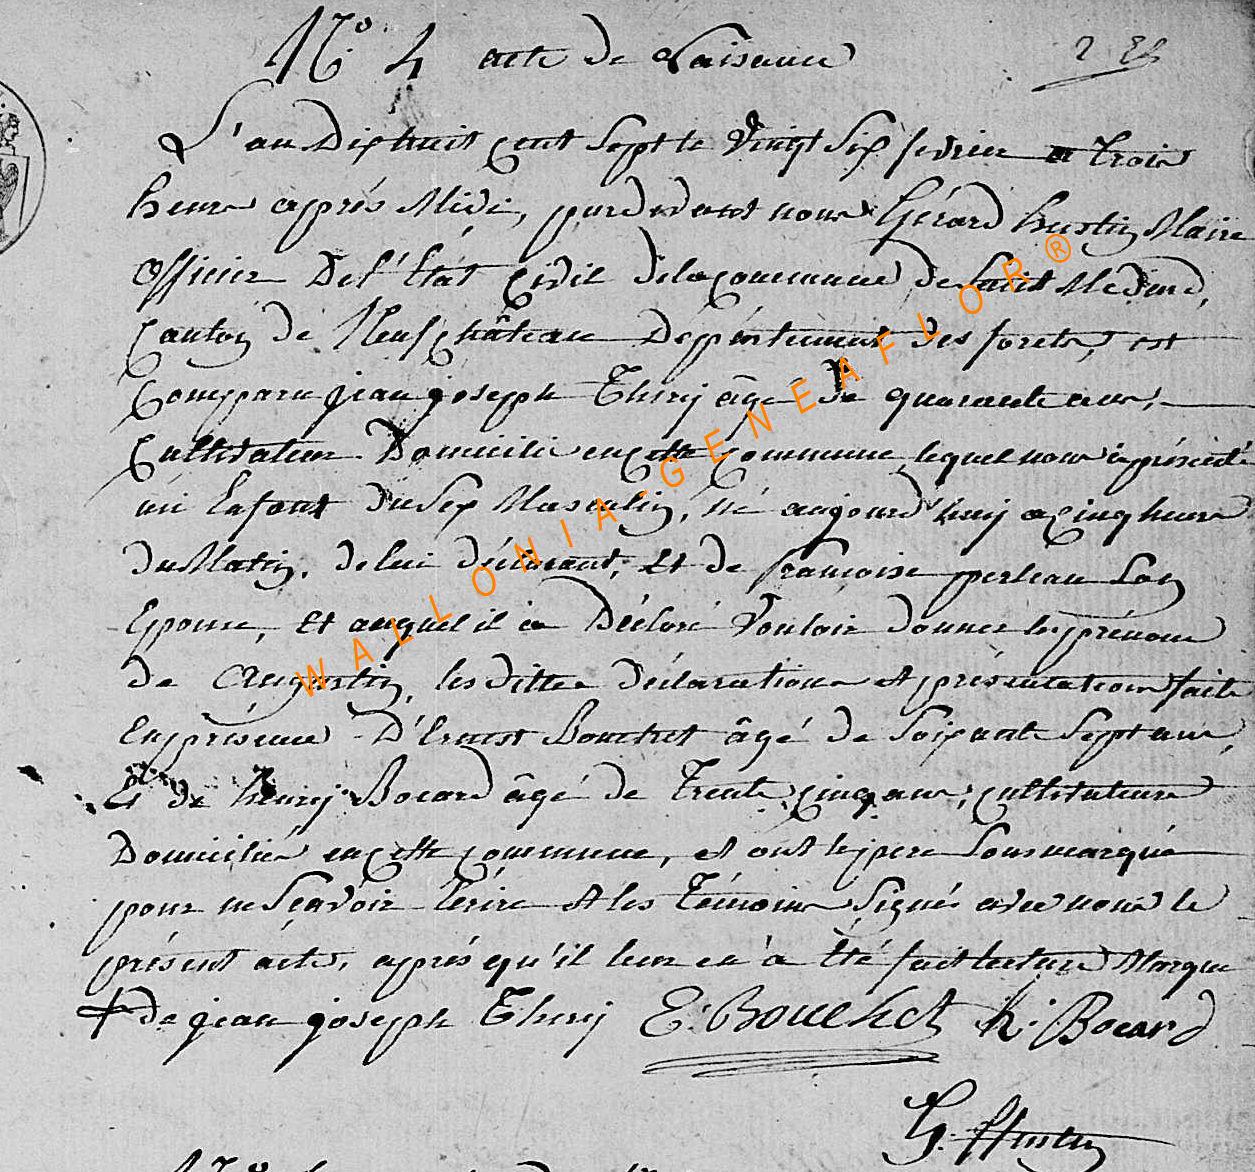 N.o 4 acte de Naissance
L'an Dixhuit cent Sept le Vingt Six fevrier a trois
heure après Midi, pardevant nous Gérard hustin Maire
Officier De l'Etât Civil dela commune de Saint Medard,
Canton de Neufchâteau Département des forets, est
Comparu jean joseph Thirij âgé de quarante ans,
Cultivateur Domicilié en cette commune, lequel nous à présenté
un Enfant du Sex Masculin, né aujourd'huij a cinq heure
du Matin, de lui déclarant, et de françoise perleau Son
Epouse, et auquel il a Déclaré Vouloir donner les prénoms
de Augustin, les dittes déclaration et présentation faite
en présence D'Ernest Bouchet âgé de Soixante Sept ans,
Et de henrij Bocard âgé de Trente cinq ans, cultivateurs
Domiciliés en cette commune, et ont le pere Sousmarqué
pour ne Scavoir Ecrire et les Témoins Signés avec nous le
présent acte, après qu'il leur en à été fait lecture Marque
+ de jean joseph Thirij E: Bouchet h: Bocard
G. Hustin
WALLONIA-GENEAFLOR®